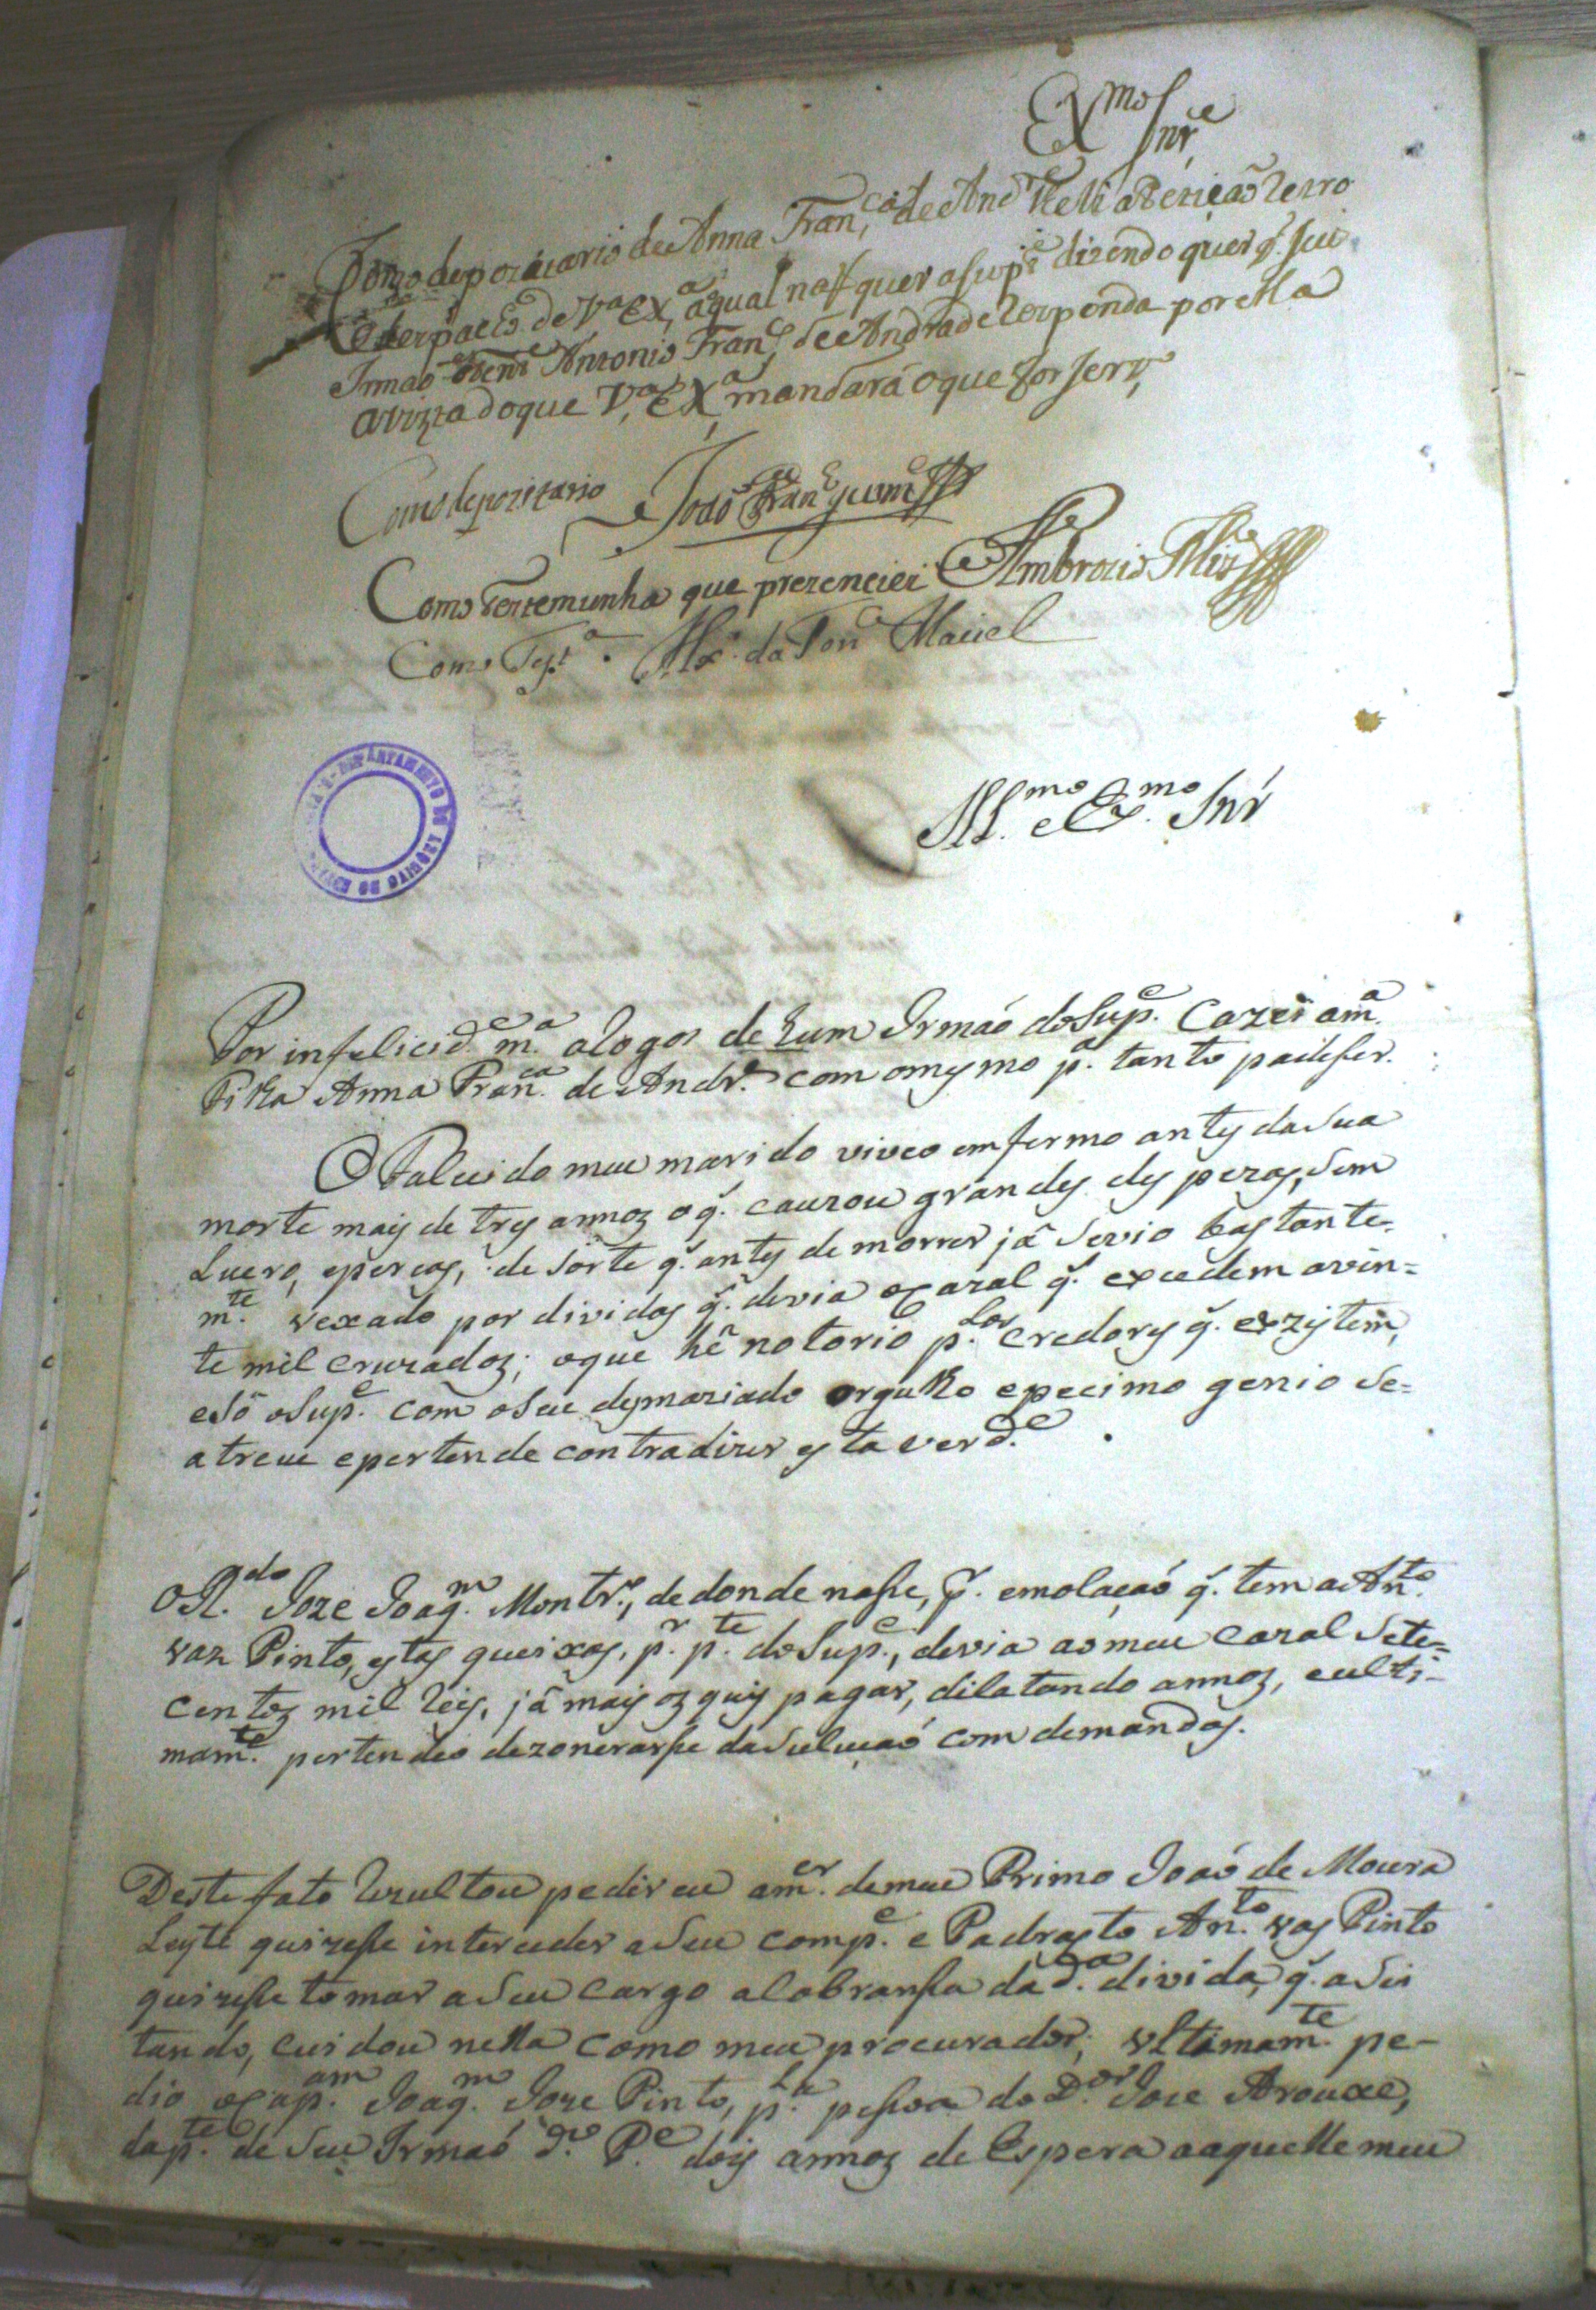 Ex.mo Snr.e
Como depozitario de Anna Fran.ca de And.e lhe li a Petição e o
Desp.acho de V.a Ex.a a qual não quer a sup.e dizendo quer q̃. seu
Irmaõ o Ten.e Antonio Fran.co de Andrade responda por ella
a vizta do que V.a Ex.a mandará o que for serv.o
Como depozitario João Fran.co
Como testemunha que prezenciei Ambrozio
Como Test.a da Fon.ca Maciel
DEPARTAMENTO DO ARQUIVO DO ESTADO
Ill.mo e Ex.mo Snr
Por infelicid.e m.a a rogos de hum Irmaõ do Sup.e Cazei a m.a
Filha Anna Fran.ca de Andr.e com o mesmo p.a tanto padeser.
O Falecido meu marido viveo emfermo antes da sua
morte mais de tres annos o q̃. cauzou grandes despezas, sem
Lucro, e percas, de sorte q̃. antes de morrer já se vio bastante-
m.te vexado por dividas q̃. devia o cazal q̃. excedem a vin=
te mil cruzados; o que hé notorio p.los credores q̃. exzistem,
e só o Sup.e com o seu desmaziado orgulho e pecimo genio se=
atreve e pertende contradizer esta verd.e.
O R.do Joze Joaq.m Montr.o, de donde nasse, p.r emolação q̃. tem a An.to
Vaz Pinto, estas queixas, p.r p.te do Sup.e, devia ao meu cazal sete=
centos mil reis, já mais os quis pagar, dilatando annos, e ulti-
mam.te pertendeo dezonerarsse da solução com demandas.
Deste fato rezultou pedir eu a m.er de meu Primo Joaõ de Moura
Leyte quizesse interceder a seu comp.e e Padrasto An.to Vas Pinto
quizesse tomar a seu cargo a cobransa da d.a divida, q̃. a sei
tando, cuidou nella como meu procurador; ultimam.te pe-
dio o cap.am Joaq.m Joze Pinto, p.la pessoa do D.or Joze Arouxe,
da p.te de seu Irmaõ d.o P.e dois annos de Espera a aquelle meu